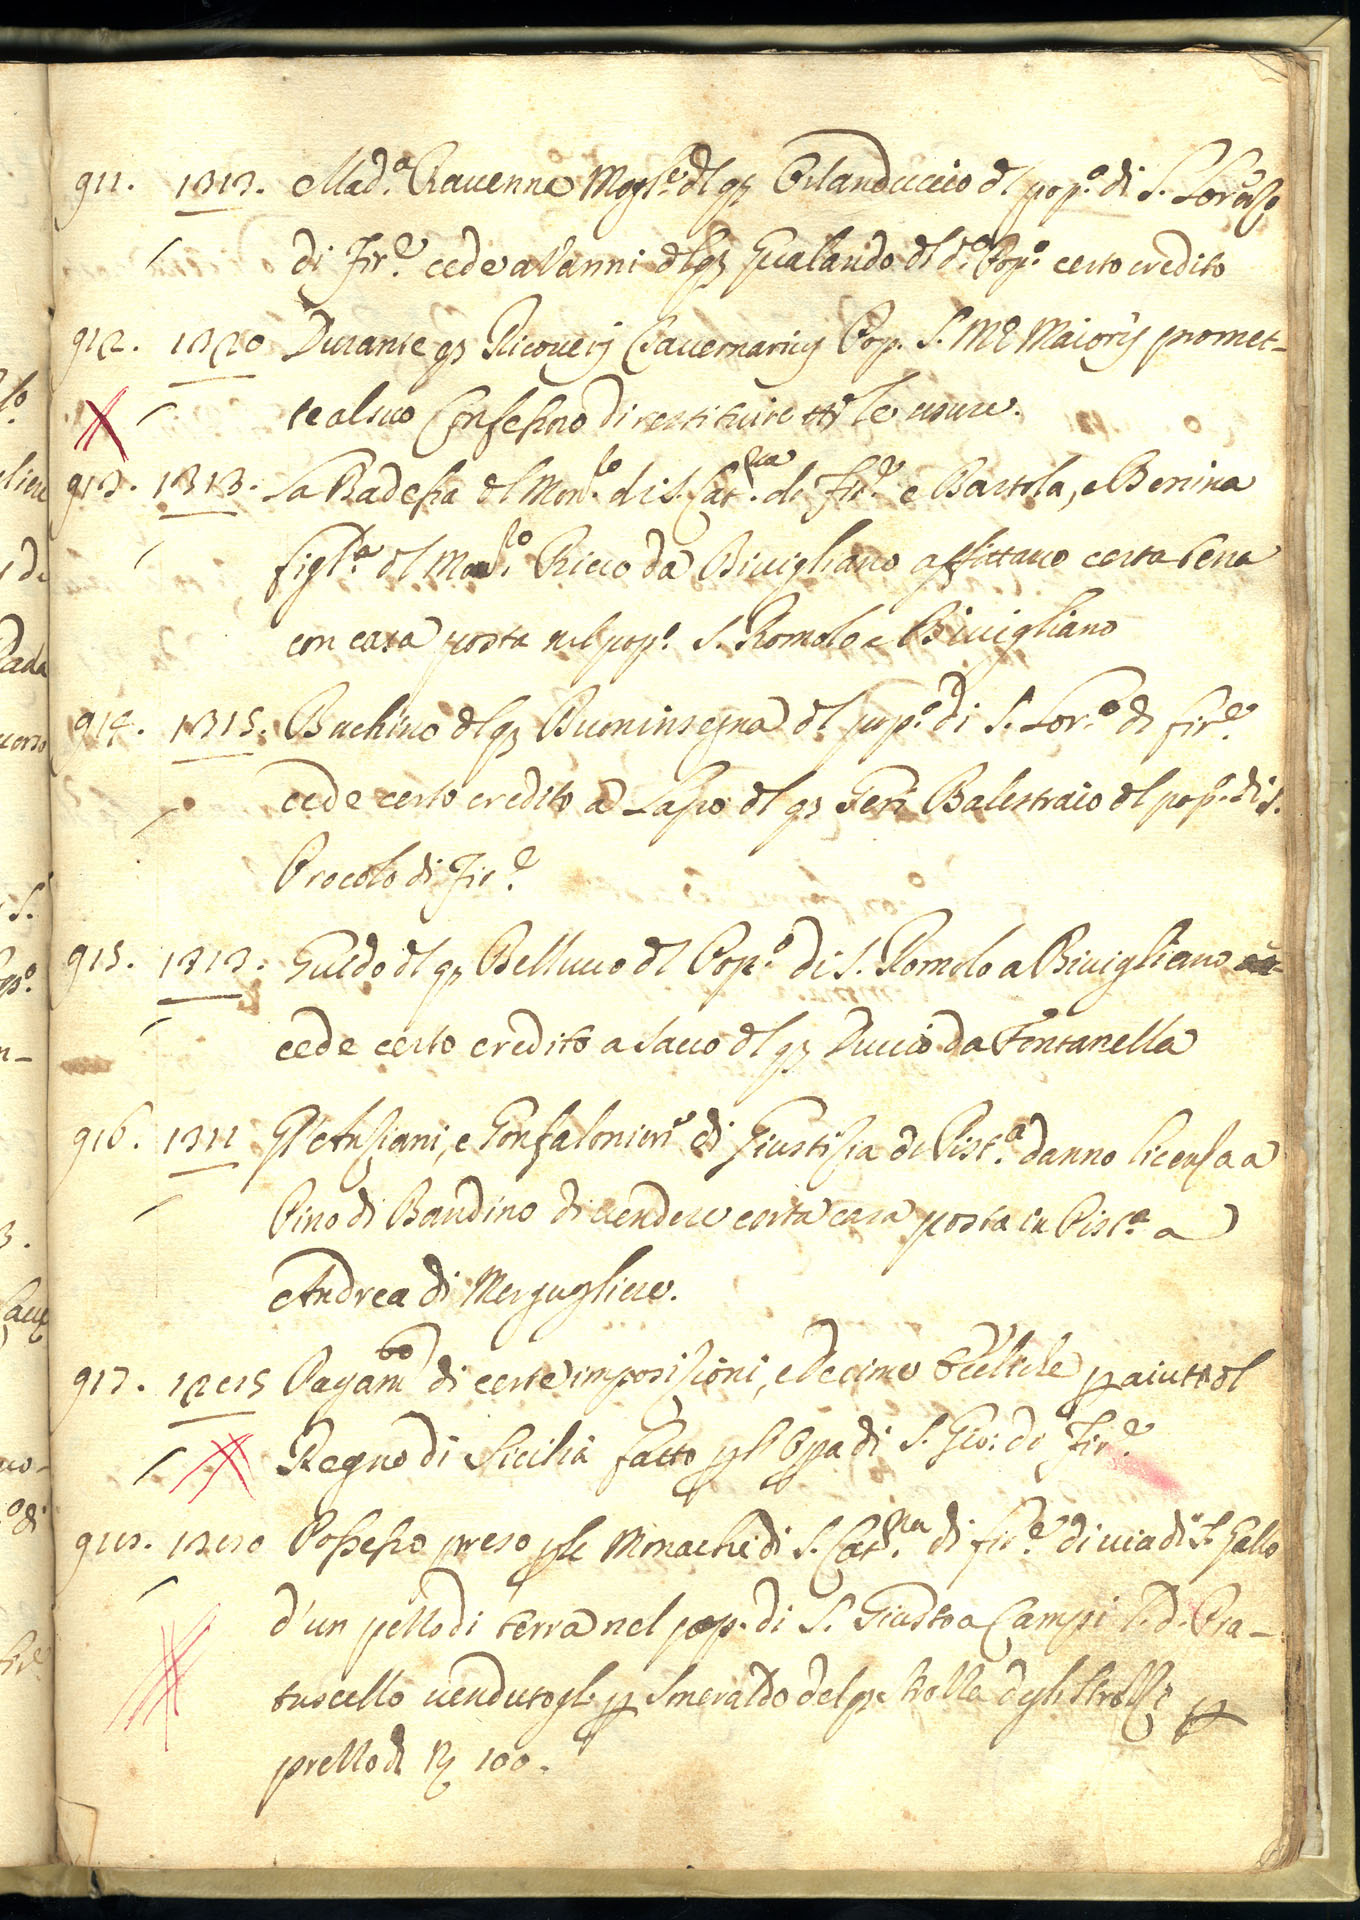 911. 1313. Mad.a Ravenna Mogl.e dl qm Orlanduccio dl pop.o di S. Lorenzo
di Fir.e cede a Vanni dl qm Gualando dl d.o Pop.o certo credito
912. 1320 Durante qm Ricoveri Pop. S. Me Maioris promet-
te al suo Confessoro di restituire tt.e le usure.
913. 1313. La Badessa dl Mon.ro di S. Cat.rina di Fir.e e Bartola, e Benina
figl.e dl Ricco da Bivigliano affittano certa terra
con casa posta nel pop.o S. Romolo a Bivigliano
914. 1315. Buchino dl qm Buoninsegna dl pop.o di S. Lor.o di Fir.e
cede certo credito a Lapo dl qm Geri Balestraio dl pop.o di S.
Procolo di Fir.e
915. 1313. Guido dl qm Bellucco dl Pop.o di S. Romolo a Bivigliano
cede certo credito a Vacco dl qm Duccio da Fontanella
916. 1311 Gl'Anziani, e Gonfalonieri di Giustizia di Pist.a danno licenza a
Pino di Bandino di vendere certa casa posta in Pist.a a
Andrea di
917. 1285 Pagam.to di certe imposizioni, e Decime p aiuto dl
Regno di Sicilia fatto p l'Opa di S. Gio: di Fir.e
918. 1280 Possesso preso p le Monache di S. Cat.rina di Fir.e di via di S. Gallo
d'un pezzo di terra nel pop.o di S. Giusto a Campi l. d. Pra-
tuscello vendutogli p Smeraldo del qm Strozza degli Strozzi p
prezzo di 100.